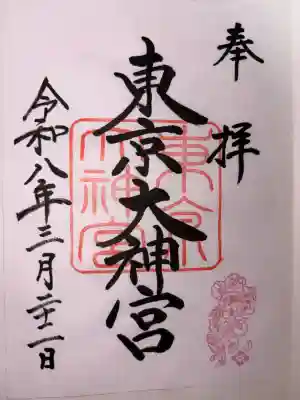 奉拝
東京大神宮
東京
大神宮
令和八年三月二十二日